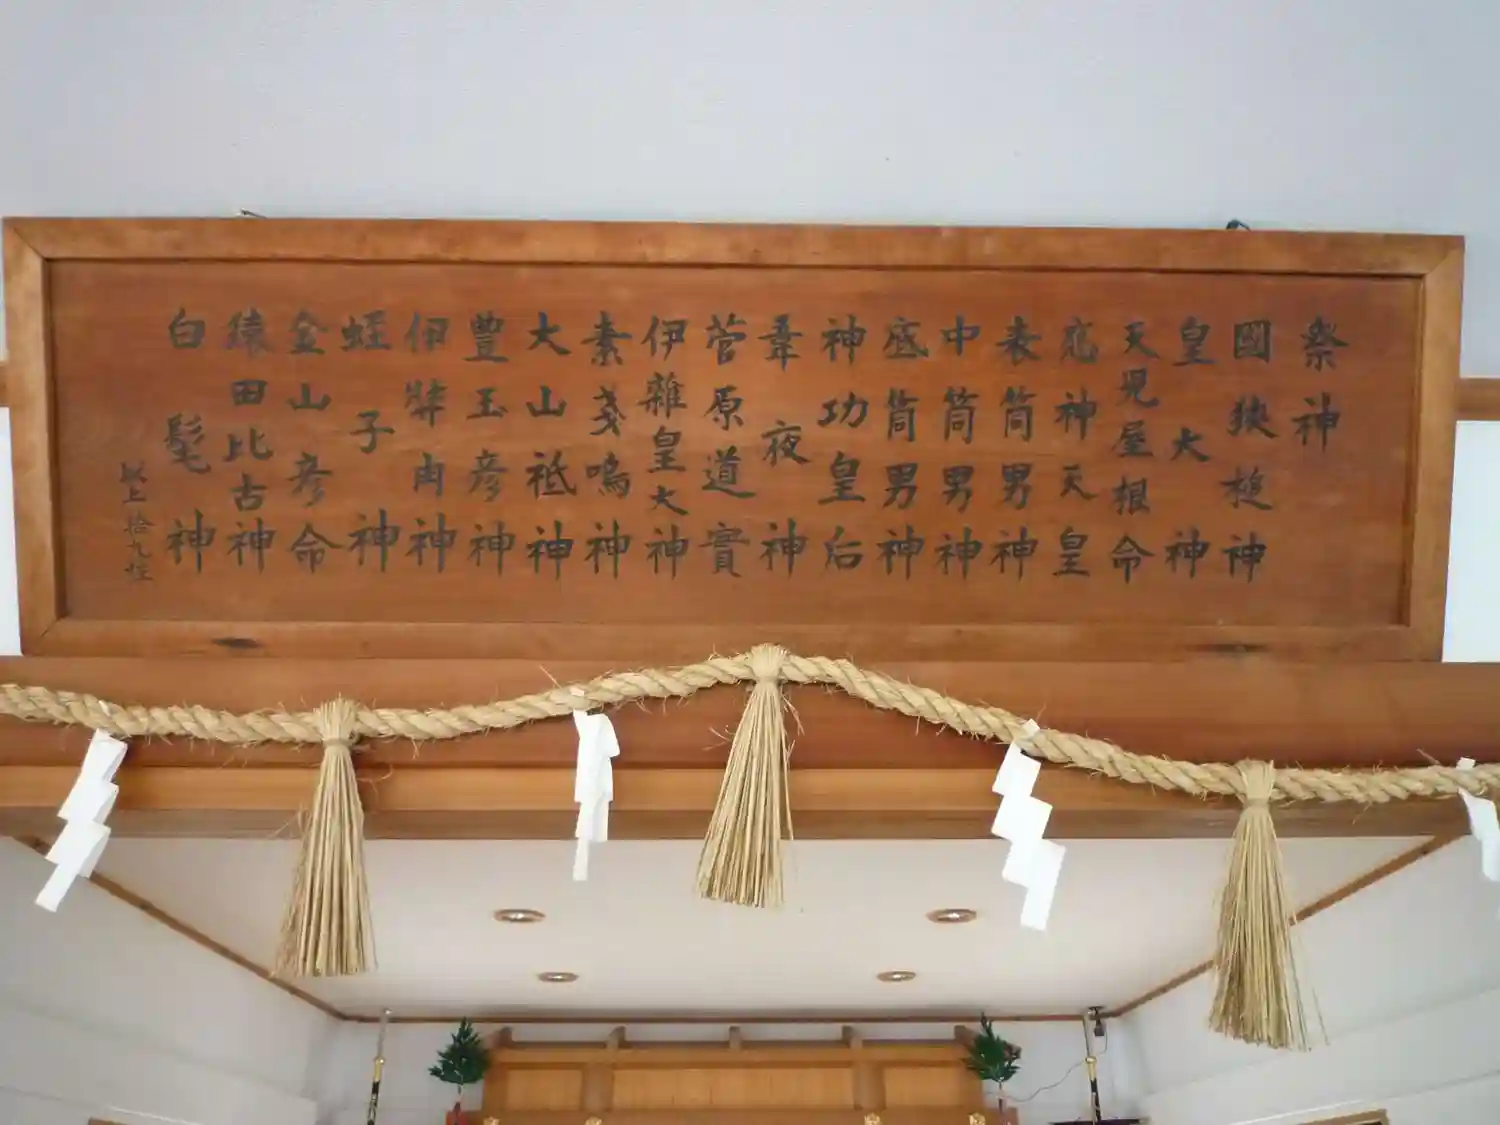 祭神
國狹槌神
皇大神
天児屋根命
応神天皇
表筒男神
中筒男神
底筒男神
神功皇后
葦夜神
菅原道實
伊雜皇大神
素戔嗚神
大山祇神
豊玉彦神
伊弉冉神
蛭子神
金山彦命
猿田比古神
白髦神
以上拾九柱